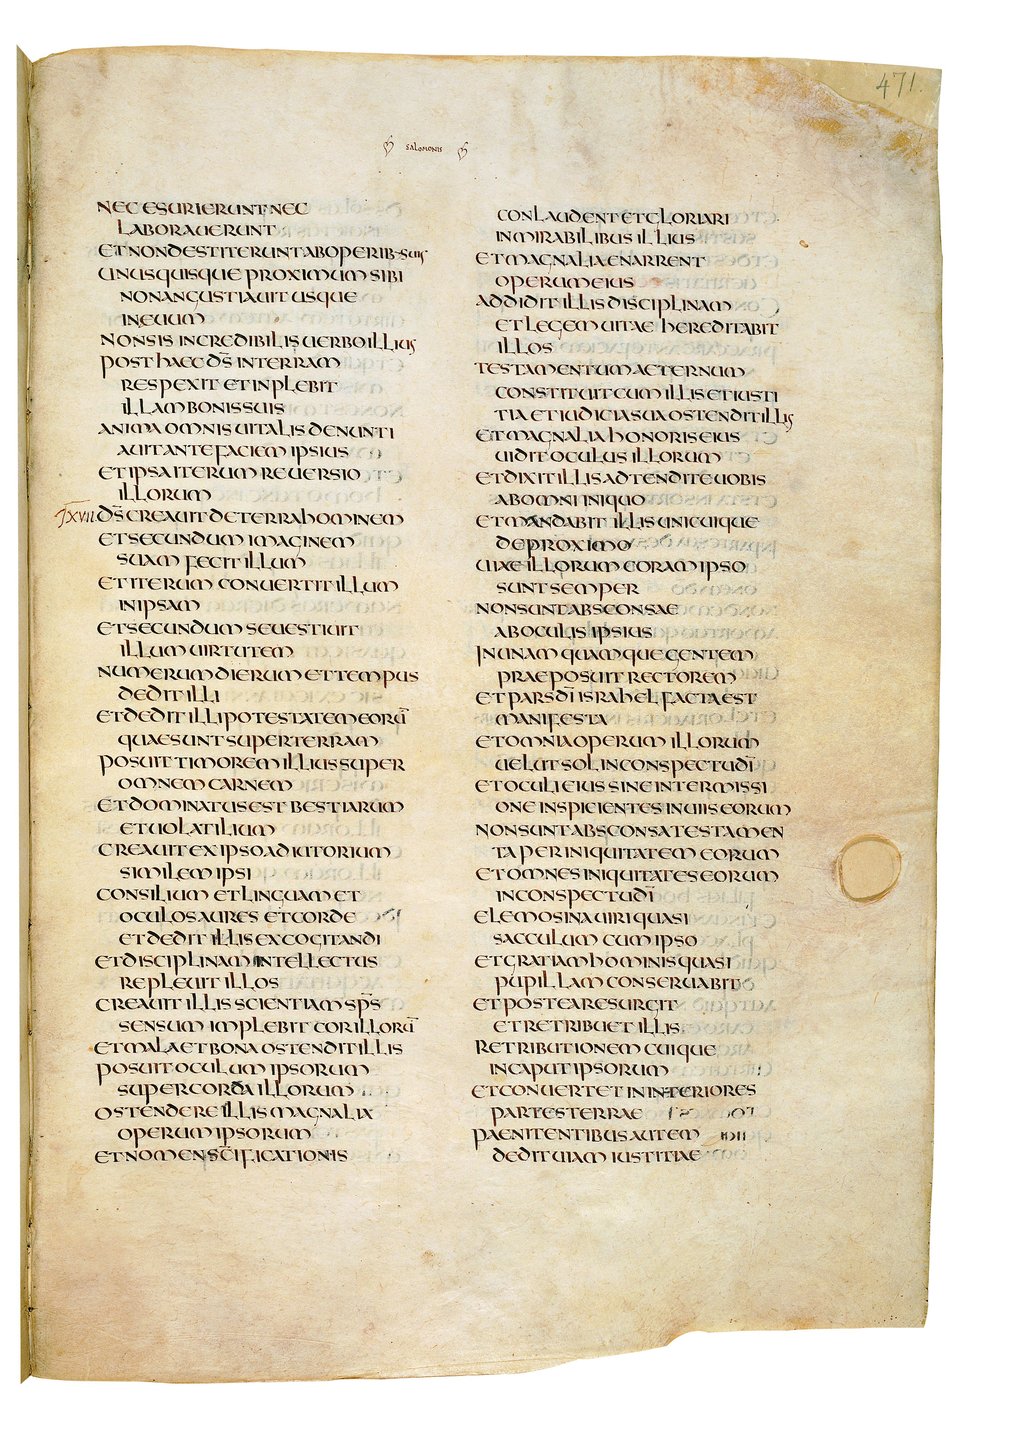 471.
SALOMONIS
NEC ESURIERUNT NEC
LABORAUERUNT
ET NON DESTITERUNT AB OPERIB· SUIS
UNUSQUISQUE PROXIMUM SIBI
NON ANGUSTIAUIT USQUE
IN EUUM
NON SIS INCREDIBILIS UERBO ILLIUS
POST HAEC D̄S IN TERRAM
RESPEXIT ET INPLEBIT
ILLAM BONIS SUIS
ANIMA OMNIS UITALIS DENUNTI
AUIT ANTE FACIEM IPSIUS
ET IPSA ITERUM REUERSIO
ILLORUM
XVII D̄S CREAUIT DE TERRA HOMINEM
ET SECUNDUM IMAGINEM
SUAM FECIT ILLUM
ET ITERUM CONUERTIT ILLUM
IN IPSAM
ET SECUNDUM SE UESTIUIT
ILLUM UIRTUTEM
NUMERUM DIERUM ET TEMPUS
DEDIT ILLI
ET DEDIT ILLI POTESTATEM EORŪ
QUAE SUNT SUPER TERRAM
POSUIT TIMOREM ILLIUS SUPER
OMNEM CARNEM
ET DOMINATUS EST BESTIARUM
ET UOLATILIUM
CREAUIT EX IPSO ADIUTORIUM
SIMILEM IPSI
CONSILIUM ET LINGUAM ET
OCULOS AURES ET CORDE
ET DEDIT ILLIS EXCOGITANDI
ET DISCIPLINAM INTELLECTUS
REPLEUIT ILLOS
CREAUIT ILLIS SCIENTIAM SP̄S
SENSUM IMPLEBIT COR ILLORŪ
ET MALA ET BONA OSTENDIT ILLIS
POSUIT OCULUM IPSORUM
SUPER CORDA ILLORUM
OSTENDERE ILLIS MAGNALIA
OPERUM IPSORUM
ET NOMEN SC̄IFICATIONIS
CONLAUDENT ET GLORIARI
IN MIRABILIBUS ILLIUS
ET MAGNALIA ENARRENT
OPERUM EIUS
ADDIDIT ILLIS DISCIPLINAM
ET LEGEM UITAE HEREDITABIT
ILLOS
TESTAMENTUM AETERNUM
CONSTITUIT CUM ILLIS ET IUSTI
TIA ET IUDICIA SUA OSTENDIT ILLIS
ET MAGNALIA HONORIS EIUS
UIDIT OCULUS ILLORUM
ET DIXIT ILLIS ADTENDITE UOBIS
AB OMNI INIQUO
ET MANDABIT ILLIS UNICUIQUE
DE PROXIMO
UIAE ILLORUM CORAM IPSO
SUNT SEMPER
NON SUNT ABSCONSAE
AB OCULIS IPSIUS
IN UNAMQUAMQUE GENTEM
PRAEPOSUIT RECTOREM
ET PARS D̄I ISRAHEL FACTA EST
MANIFESTA
ET OMNIA OPERUM ILLORUM
UELUT SOL IN CONSPECTU D̄I
ET OCULI EIUS SINE INTERMISSI
ONE INSPICIENTES IN UIIS EORUM
NON SUNT ABSCONSA TESTAMEN
TA PER INIQUITATEM EORUM
ET OMNES INIQUITATES EORUM
IN CONSPECTU D̄I
ELEMOSINA UIRI QUASI
SACCULUM CUM IPSO
ET GRATIAM HOMINIS QUASI
PUPILLAM CONSERUABIT
ET POSTEA RESURGIT
ET RETRIBUET ILLIS
RETRIBUTIONEM CUIQUE
IN CAPUT IPSORUM
ET CONUERTET IN INTERIORES
PARTES TERRAE
PAENITENTIBUS AUTEM
DEDIT UIAM IUSTITIAE